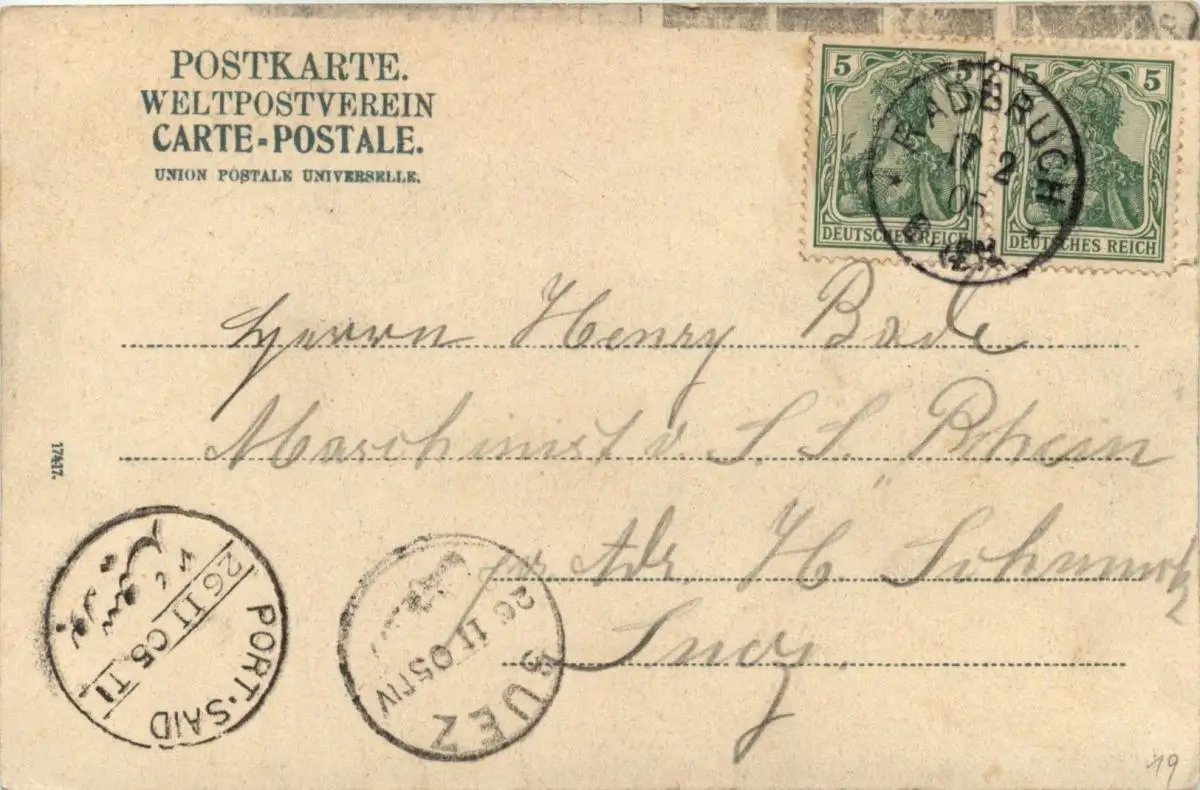 POSTKARTE.
WELTPOSTVEREIN
CARTE-POSTALE.
UNION POSTALE UNIVERSELLE.
5 5
DEUTSCHES REICH
5 5
DEUTSCHES REICH
* RADBRUCH *
17 2
05
Herrn Henry Bade
Maschinist d. S. S. "Rhein
pr Adr. H. Schmutz
Suez.
17417.
PORT-SAID
26 II 05. TI
بورت سعيد
SUEZ
26 II 05 TIV
19